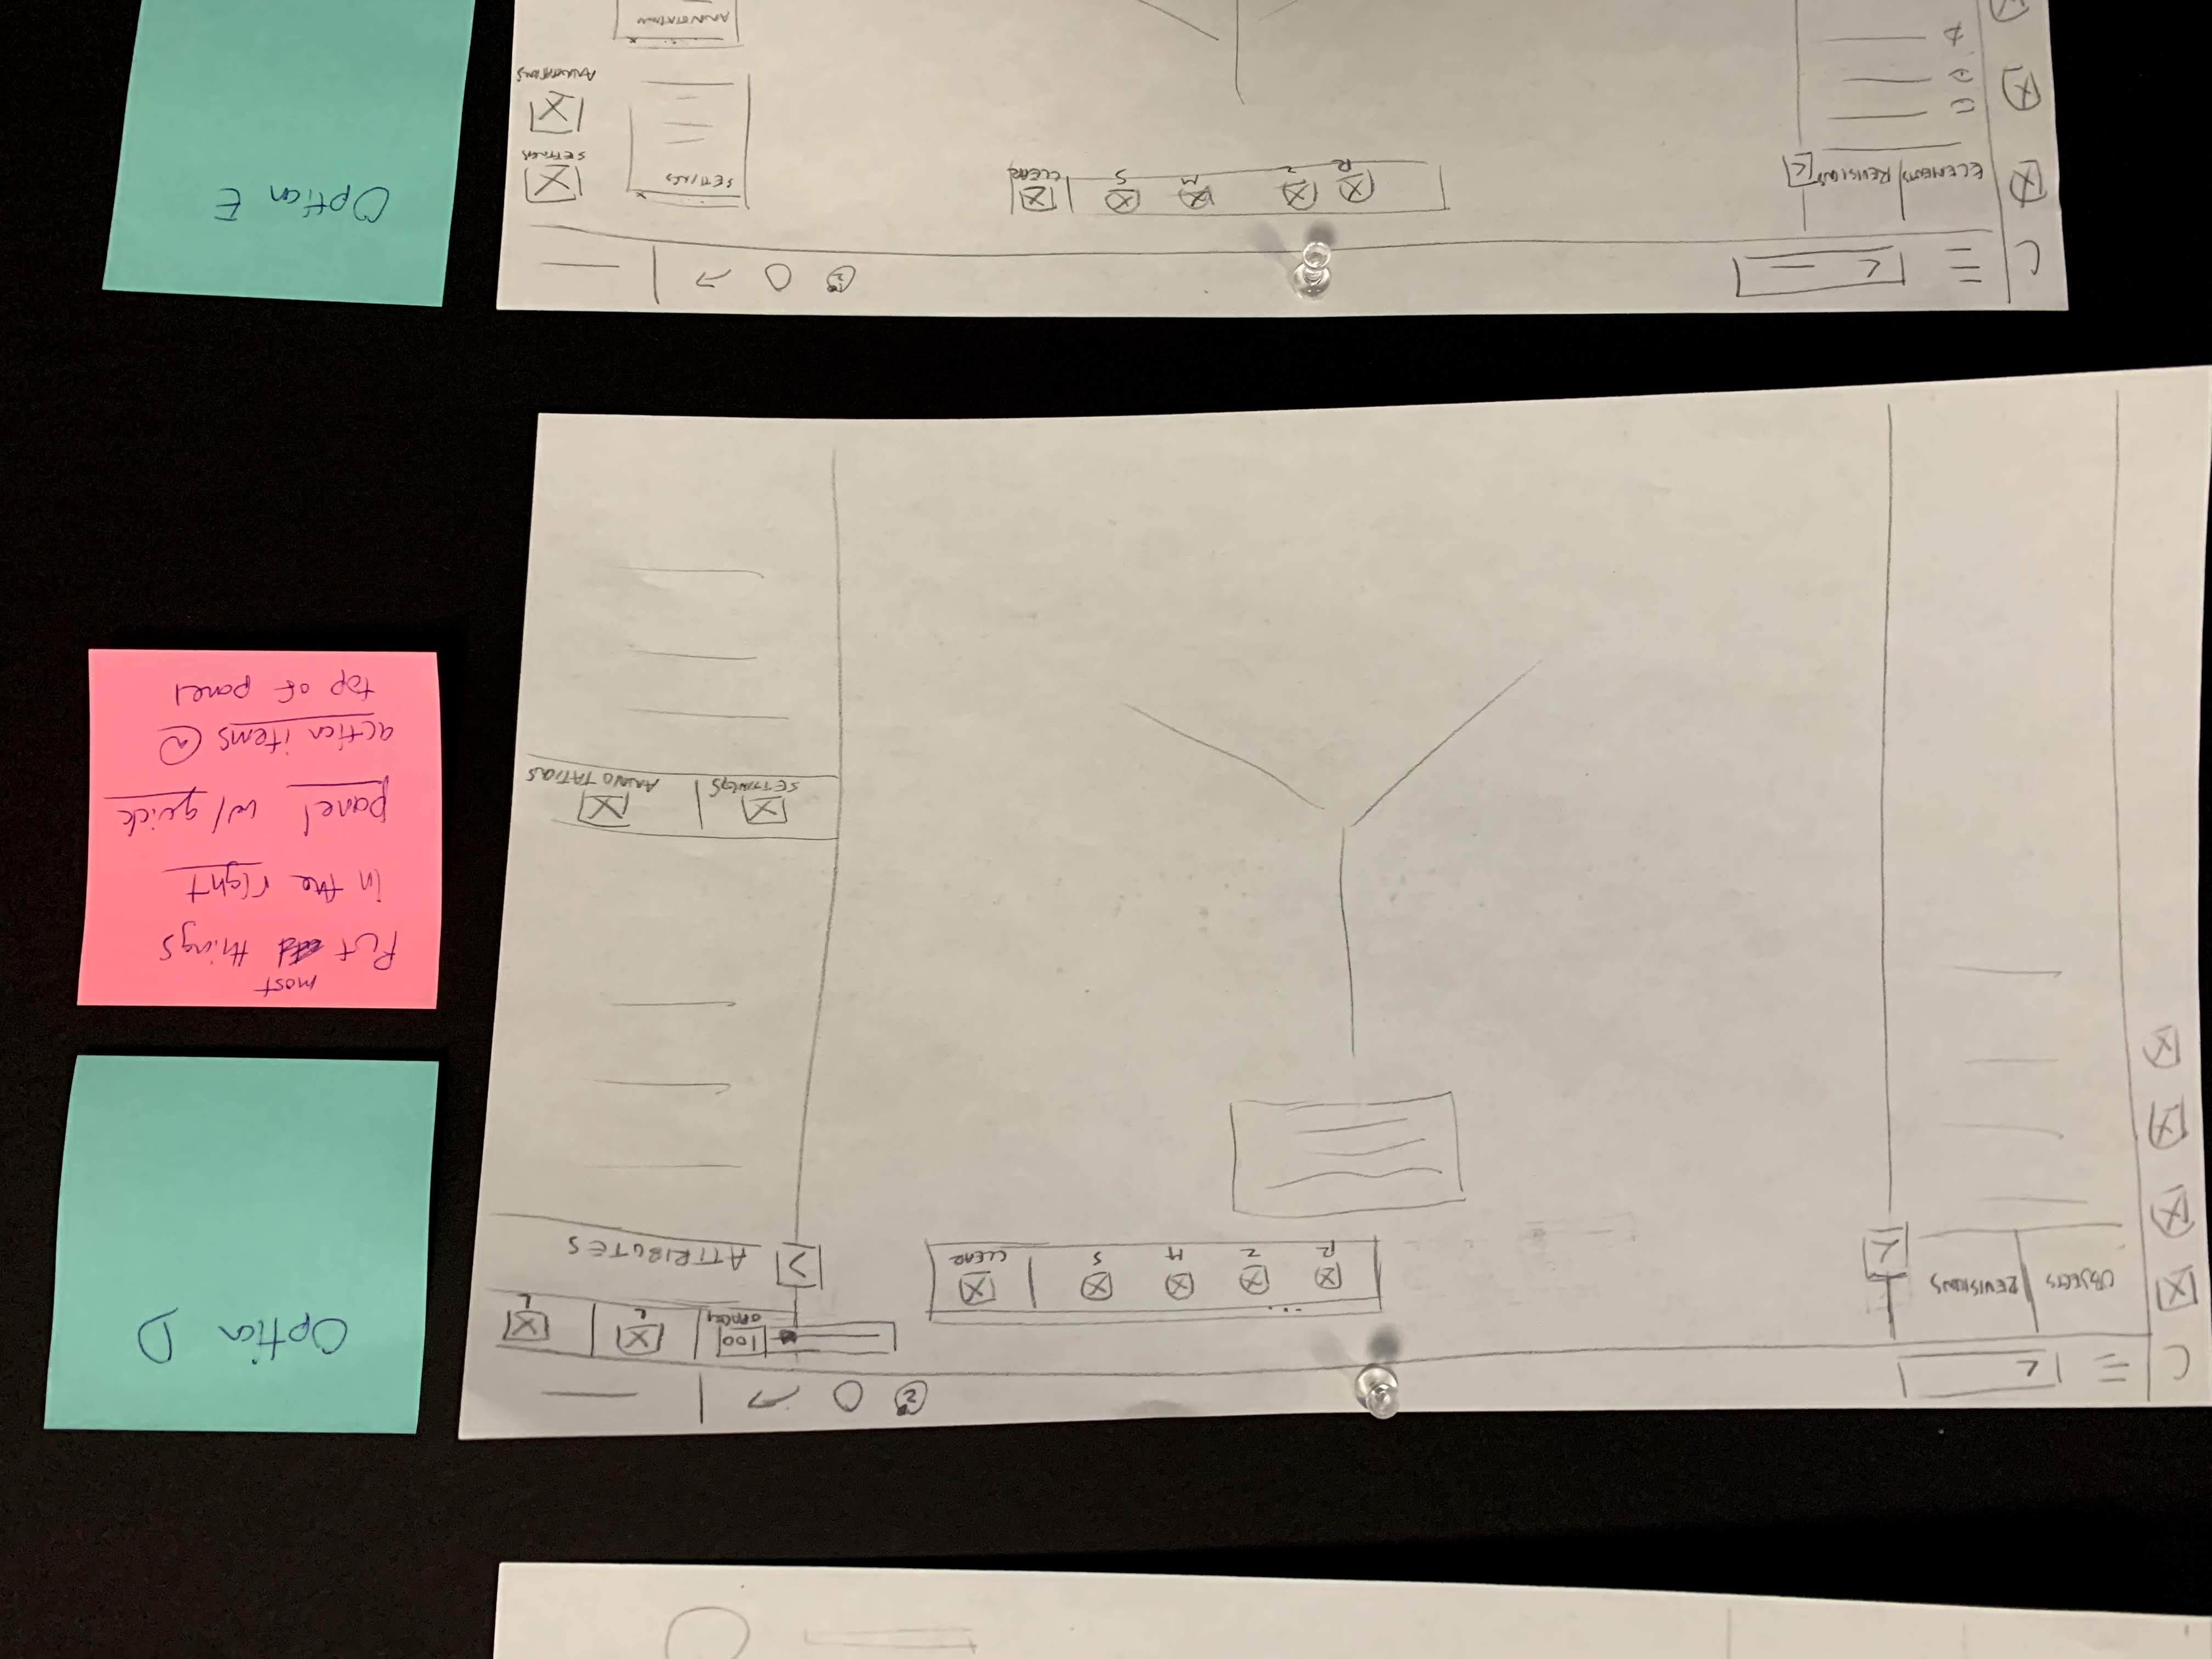 C
2
100
OPACITY
L
L
OBJECTS
REVISIONS
R
Z
M
S
CLEAR
ATTRIBUTES
SETTINGS
ANNOTATIONS
Option D
most
Put things
in the right
panel w/ quick
action items @
top of panel
C
2
ELEMENTS
REVISIONS
R
Z
M
S
CLEAR
SETTINGS
SETTINGS
ANNOTATIONS
ANNOTATION
Option E